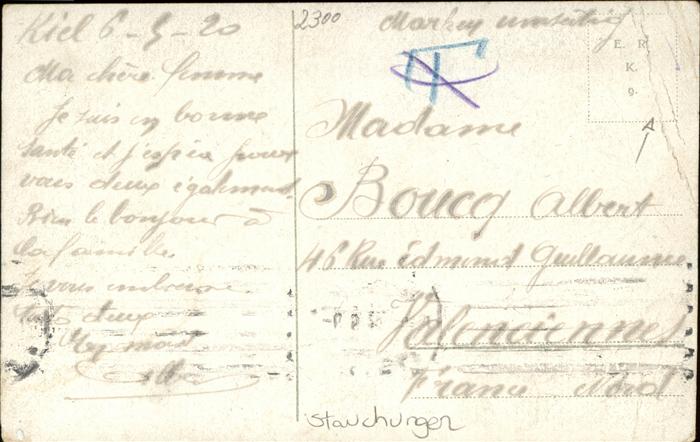 Kiel 6-5-20
Ma chère femme
Je suis en bonne
santé et j'espère pour
vous deux également.
Bien le bonjour à
la famille.
Je vous embrasse
2300
T
E. R.
K.
9.
A
Madame
Boucq Albert
46 Rue Edmond Guillaume
Valenciennes
France Nord
Stauchungen